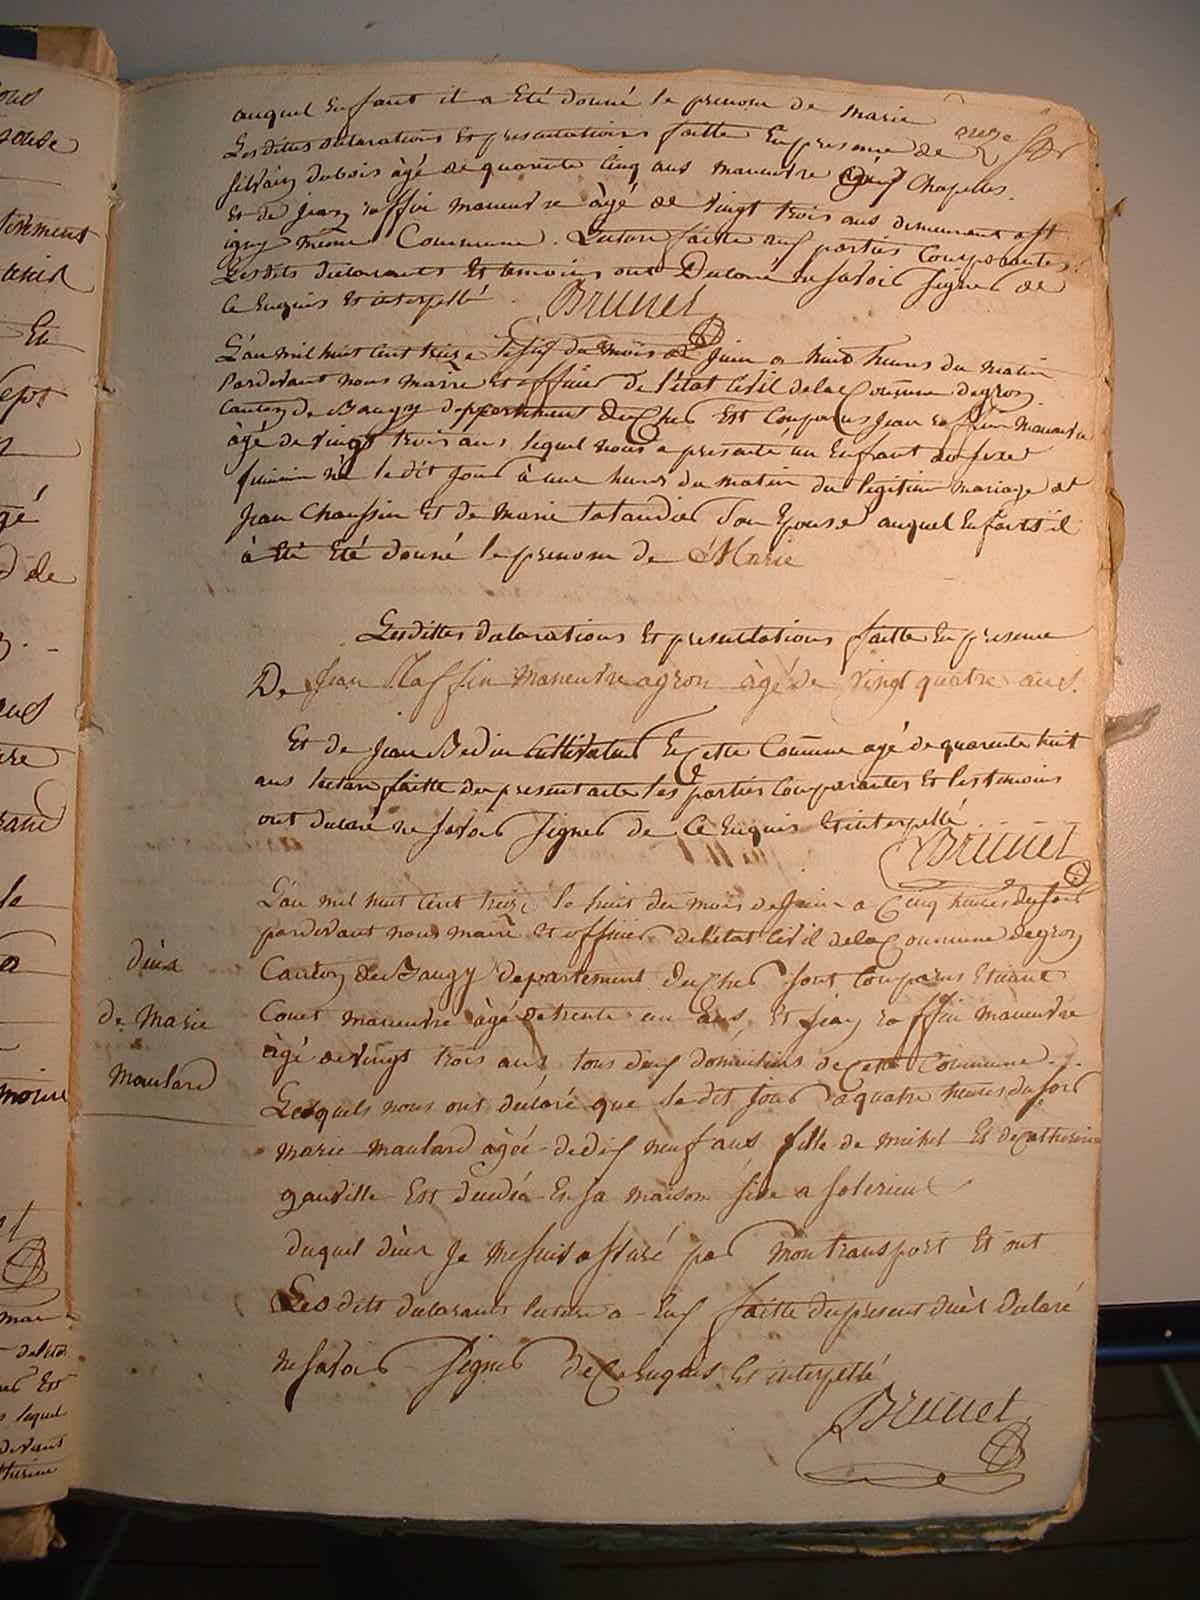 auquel Enfant il a Eté donné le prenom de marie
Lesdittes declarations Et presentations faitte En presence de
silvain dubois âgé de quarante cinq ans maneuvre Chapelles.
Et de Jean raffin maneuvre âgé de vingt trois ans demeurant
meme Commune. Lecture faitte aux parties Comparantes.
Lesdits declarants Et temoins ont Declaré ne savoir signer de
Ce Enquis Et interpellé Brunet
L'an mil huit Cent treize le six du mois de Juin a huit heures du matin
Pardevant nous maire Et officier de l'état Civil de la Commune degron
Canton de Baugy departement du Cher Est Comparus Jean raffin Maneuvre
âgé de vingt trois ans, lequel nous a presenté un Enfant du sexe
feminin né le dit Jour à une heure du matin du legitime mariage de
Jean Chaussin Et de Marie Son Epouse auquel Enfants il
à Eté Eté donné le prenom de Marie
Lesdittes declarations Et presentations faitte En presence
De Jean Raffin maneuvre agron âgé de vingt quatre ans.
Et de Jean Bedin Cultivateur En Cette Comune agé de quarente huit
ans lecture faitte du present acte les parties Comparantes Et les temoins
ont declaré ne savoir signer de Ce Enquis Et interpellé
Brunet
L'an mil huit Cent treize le huit du mois de Juin a Cinq heures du soir
pardevant nous maire Et officier de l'état Civil dela Commune degron
Canton de Baugy departement du Cher sont Comparus Etienne
Couet maneuvre âgé de trente un ans, Et Jean raffin maneuvre
âgé de vingt trois ans tous deux domiciliers de Cette Commune.
Lesquels nous ont déclaré que le dit jour a quatre heures du soir
marie maulard âgée de dix neuf ans fille de michel Et de Catherine
gauville Est deucdéa En sa maison size a solerieux
duquel décer Je me suit assuré par mon transport Et ont
Les dits declarants lecture a Eux faitte du present décèr declaré
ne savoir signer de Ce Enquis Et interpellé
Brunet
décèr
De Marie
Maulard